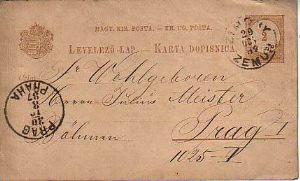 MAGY. KIR. POSTA. — KR. UG. POŠTA.
LEVELEZŐ-LAP. — KARTA DOPISNICA.
ZEMUN
Sr Wohlgeboren
Herrn Julius Meister
Prag I
Böhmen
1025-I
PRAG
PRAHA